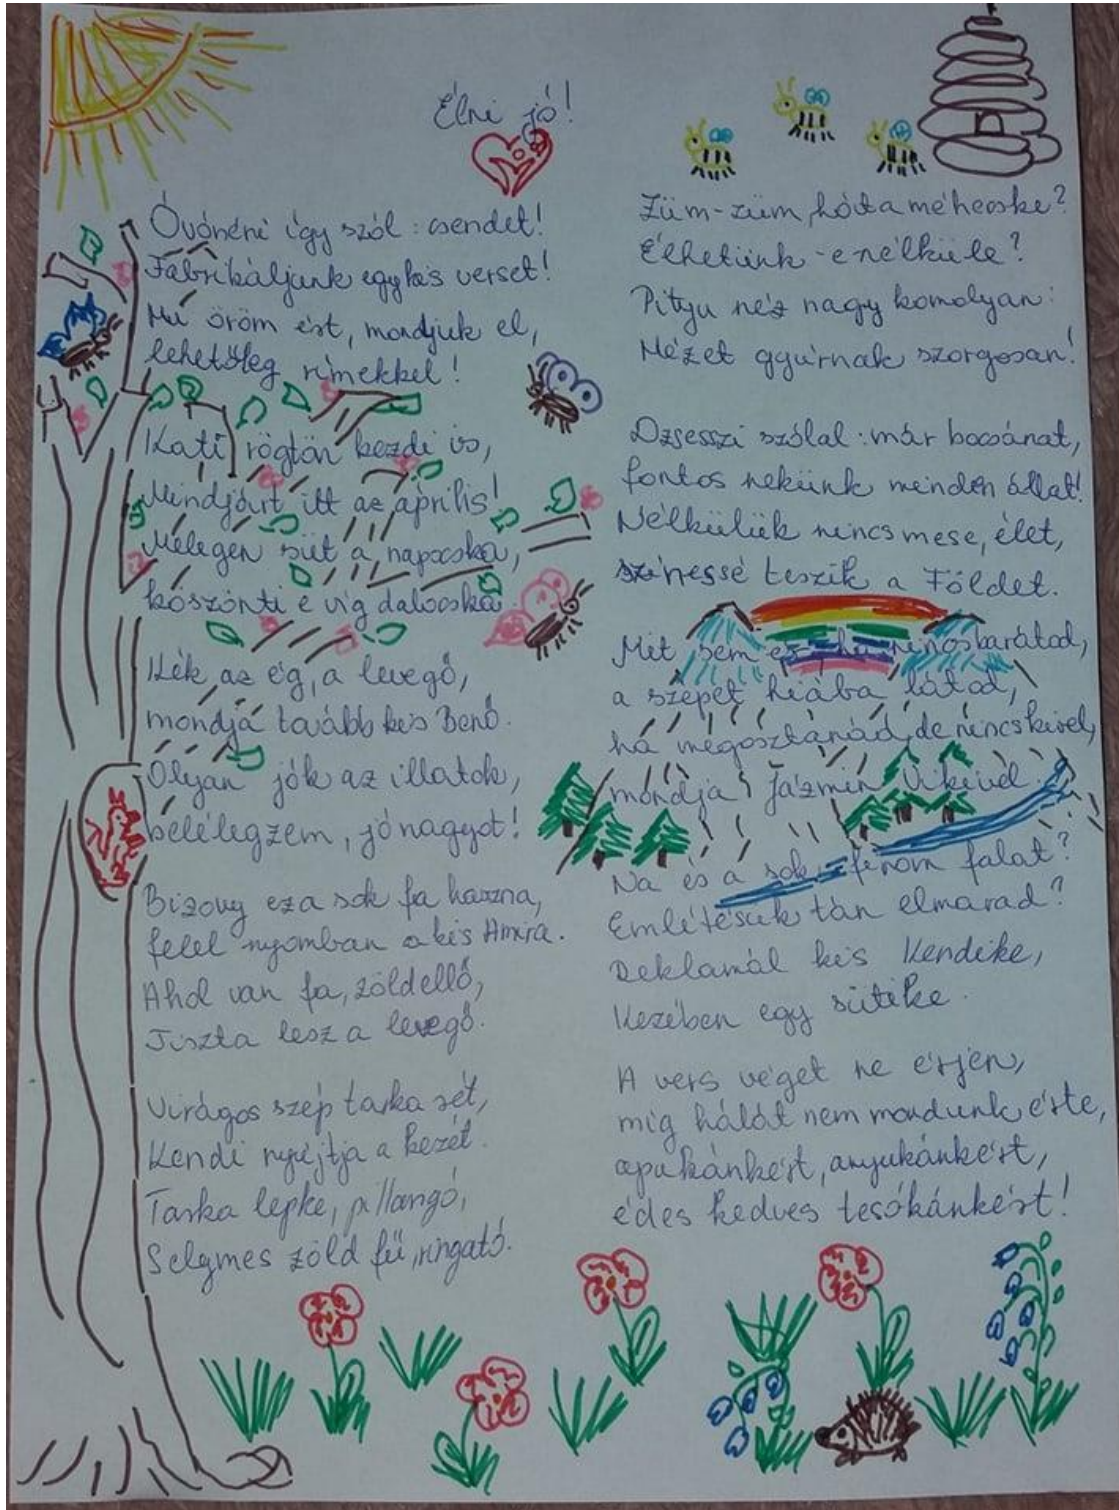 Élni jó!
Óvónéni így szól: csendet!
Fabrikáljunk egy kis verset!
Mi öröm ért, mondjuk el,
lehetőleg rímekkel!
Kati rögtön kezdi is,
Mindjárt itt az április!
Melegen süt a napocska,
köszönti e víg dalocska.
Kék az ég, a levegő,
mondja tovább kis Benő.
Olyan jók az illatok,
belélegzem, jó nagyot!
Bizony ez a sok fa haszna,
felel nyomban a kis Amira.
Ahol van fa, zöldellő,
Tiszta lesz a levegő.
Virágos szép tarka rét,
Kendi nyújtja a kezét.
Tarka lepke, pillangó,
Selymes zöld fű, ringató.
Züm-züm, hát a méhecske?
Élhetünk-e nélküle?
Pityu néz nagy komolyan:
Mézet gyúrnak szorgosan!
Dzsesszi szólal: már bocsánat,
fontos nekünk minden állat!
Nélkülük nincs mese, élet,
színessé teszik a Földet.
Mit sem ér, ha nincs barátod,
a szépet hiába látod,
ha megosztanád, de nincs kivel,
mondja Jázmin Vikivel.
Na és a sok finom falat?
Említésük tán elmarad?
Reklamál kis Kendike,
Kezében egy sütike.
A vers véget ne érjen,
míg hálát nem mondunk érte,
apukánkért, anyukánkért,
édes kedves tesókánkért!